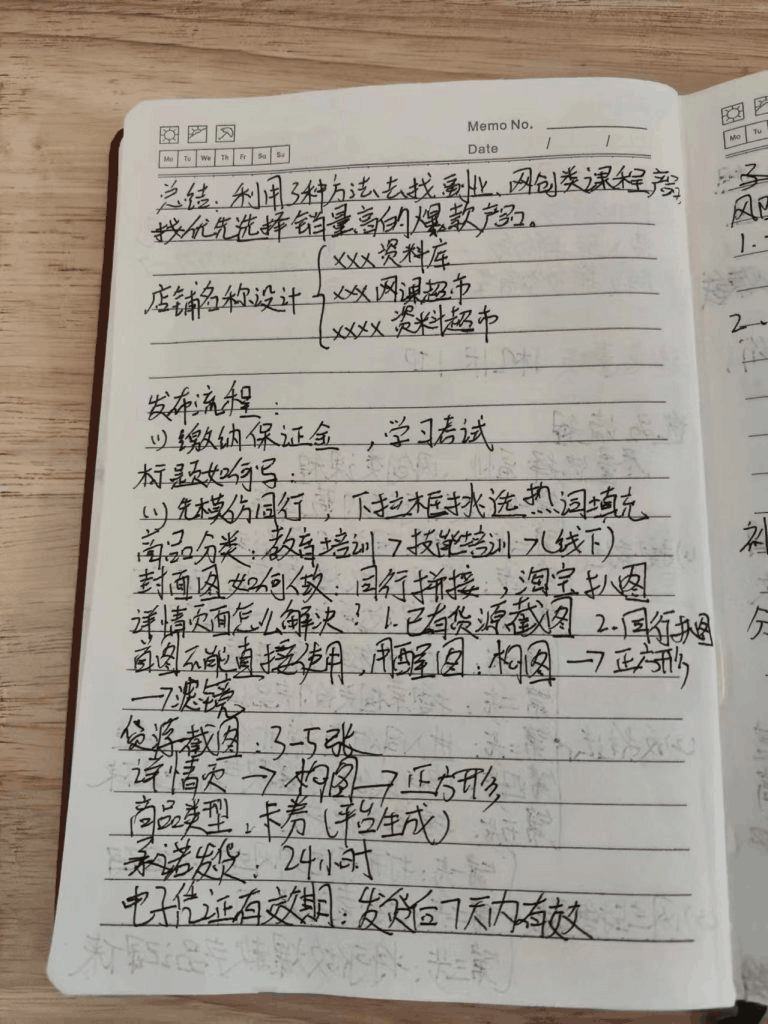 Memo No.
Mo Tu We Th Fr Sa Su
Date / /
总结:利用3种方法去找副业、网创类课程,
找优先选择销量高的爆款产品。
店铺名称设计
xxx资料库
xxx网课超市
xxxx资料超市
发布流程:
(1)缴纳保证金,学习考试
标题如何写:
(1)先模仿同行,下拉框挑选热词填充
商品分类:教育培训>技能培训>(线下)
封面图如何做:同行拼接,淘宝扒图
详情页面怎么解决?1.已有货源截图 2.同行扒图
首图不能直接使用,用醒图:构图→正方形
→滤镜
货源截图:3-5张
详情页→构图→正方形
商品类型:卡券(平台生成)
承诺发货:24小时
电子凭证有效期:发货后7天内有效
Mo Tu
1.
2.
补
分